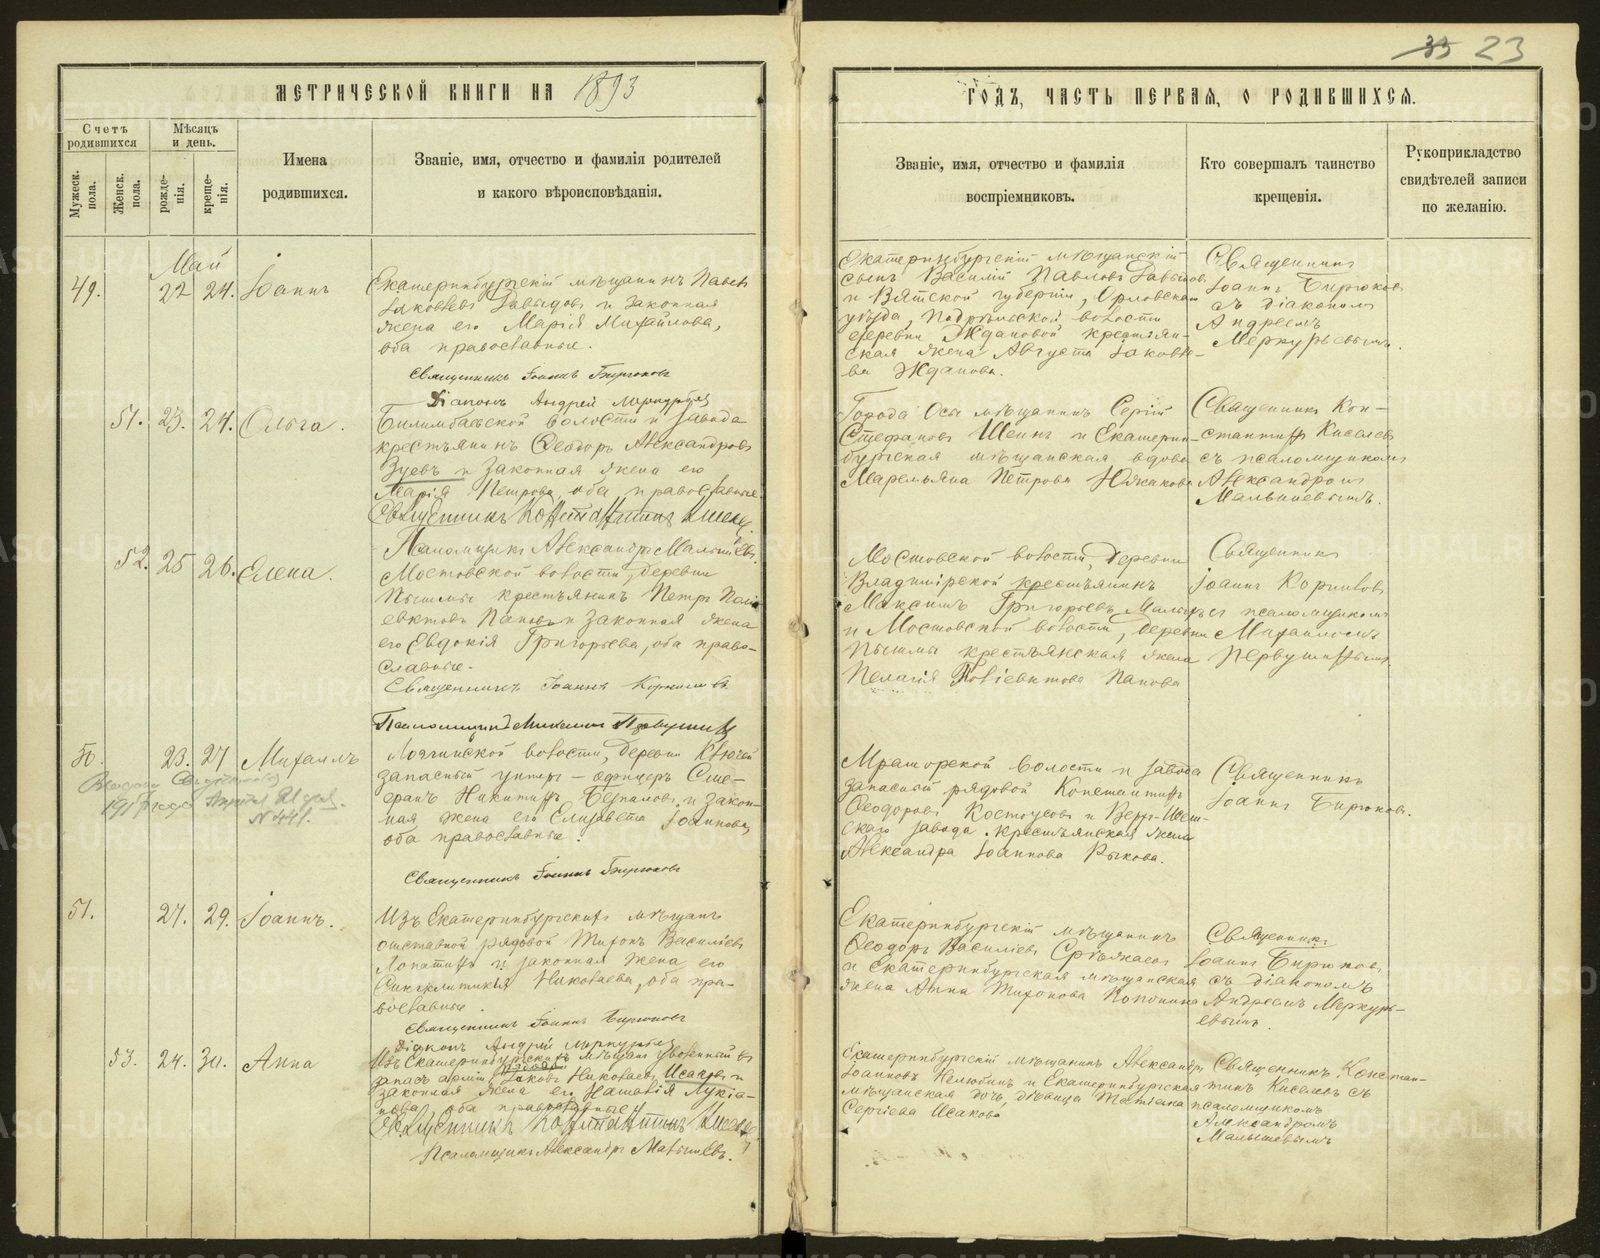 МЕТРИЧЕСКОЙ КНИГИ НА 1893
Счетъ родившихся
Мѣсяцъ и день.
Мужеск. пола.
Женск. пола.
рожде-нія.
креще-нія.
Имена
родившихся.
Званіе, имя, отчество и фамилія родителей
и какого вѣроисповѣданія.
Май
49.
22 24.
Іоаннъ
Екатеринбургскій мѣщанинъ Павелъ
Іаковлевъ Давыдовъ и законная
жена его Марія Михайлова,
оба православные.
Священникъ Іоаннъ Бирюковъ
Діаконъ Андрей Меркурьевъ
51. 23. 24. Ольга.
Билимбаевской волости и завода
крестьянинъ Ѳеодоръ Александровъ
Зуевъ и законная жена его
Марія Петрова, оба православные.
Священникъ Константинъ Киселевъ
Псаломщикъ Александръ Малышевъ
52. 25 26. Елена.
Мостовской волости, деревни
Пышмы крестьянинъ Петръ Поли
евктовъ Пановъ и законная жена
его Евдокія Григорьева, оба право-
славные.
Священникъ Іоаннъ Корниловъ
Псаломщикъ Михаилъ Первушинъ
50. 23. 27 Михаилъ
N 441.
волости, деревни Ключей
запасный унтеръ-офицеръ Сте-
фанъ Никитинъ и закон-
ная жена его Елизавета Іоаннова,
оба православные.
Священникъ Іоаннъ Бирюковъ
51. 27. 29. Іоаннъ.
Изъ Екатеринбургскихъ мѣщанъ
отставной рядовой Тихонъ Василіевъ
Лопатинъ и законная жена его
Синклитикія Николаева, оба пра-
вославные.
Священникъ Іоаннъ Бирюковъ
Діаконъ Андрей Меркурьевъ
53. 24. 30. Анна
Изъ Екатеринбургскихъ мѣщанъ уволенный въ
запасъ арміи рядовой Іаковъ Николаевъ Исаковъ и
законная жена его Наталія Лукіа-
нова, оба православные
Священникъ Константинъ Киселевъ
Псаломщикъ Александръ Малышевъ.
35 23
ГОДЪ, ЧАСТЬ ПЕРВАЯ, О РОДИВШИХСЯ.
Званіе, имя, отчество и фамилія
воспріемниковъ.
Кто совершалъ таинство
крещенія.
Рукоприкладство
свидѣтелей записи
по желанію.
Екатеринбургскій мѣщанскій
сынъ Василій Павловъ Давыдовъ
и Вятской губерніи, Орловскаго
уѣзда, волости
деревни Ждановой крестьян-
ская жена Августа Іаковле-
ва Жданова.
Священникъ
Іоаннъ Бирюковъ
съ діакономъ
Андреемъ
Меркурьевымъ.
Города Осы мѣщанинъ Сергій
Стефановъ Шеинъ и Екатерин-
бургская мѣщанская вдова
Маремьяна Петрова
Священникъ Кон-
стантинъ Киселевъ
съ псаломщикомъ
Александромъ
Малышевымъ.
Мостовской волости, деревни
Владимірской крестьянинъ
Максимъ Григорьевъ
и Мостовской волости, деревни
Пышмы крестьянская жена
Пелагія Поліевктова Панова
Священникъ
Іоаннъ Корниловъ
съ псаломщикомъ
Михаиломъ
Первушинымъ.
Мраморской волости и завода
запасной рядовой Константинъ
Ѳеодоровъ Костоусовъ и Верх-Исет-
скаго завода крестьянская жена
Александра Іоаннова Рыкова.
Священникъ
Іоаннъ Бирюковъ.
Екатеринбургскій мѣщанинъ
Ѳеодоръ Василіевъ
и Екатеринбургская мѣщанская
жена Анна Тихонова
Священникъ
Іоаннъ Бирюковъ
съ діакономъ
Андреемъ Меркурь-
евымъ.
Екатеринбургскій мѣщанинъ Александръ
Іоанновъ Нелюбинъ и Екатеринбургская
мѣщанская дочь, дѣвица Татіана
Сергіева Исакова
Священникъ Констан-
тинъ Киселевъ съ
псаломщикомъ
Александромъ
Малышевымъ